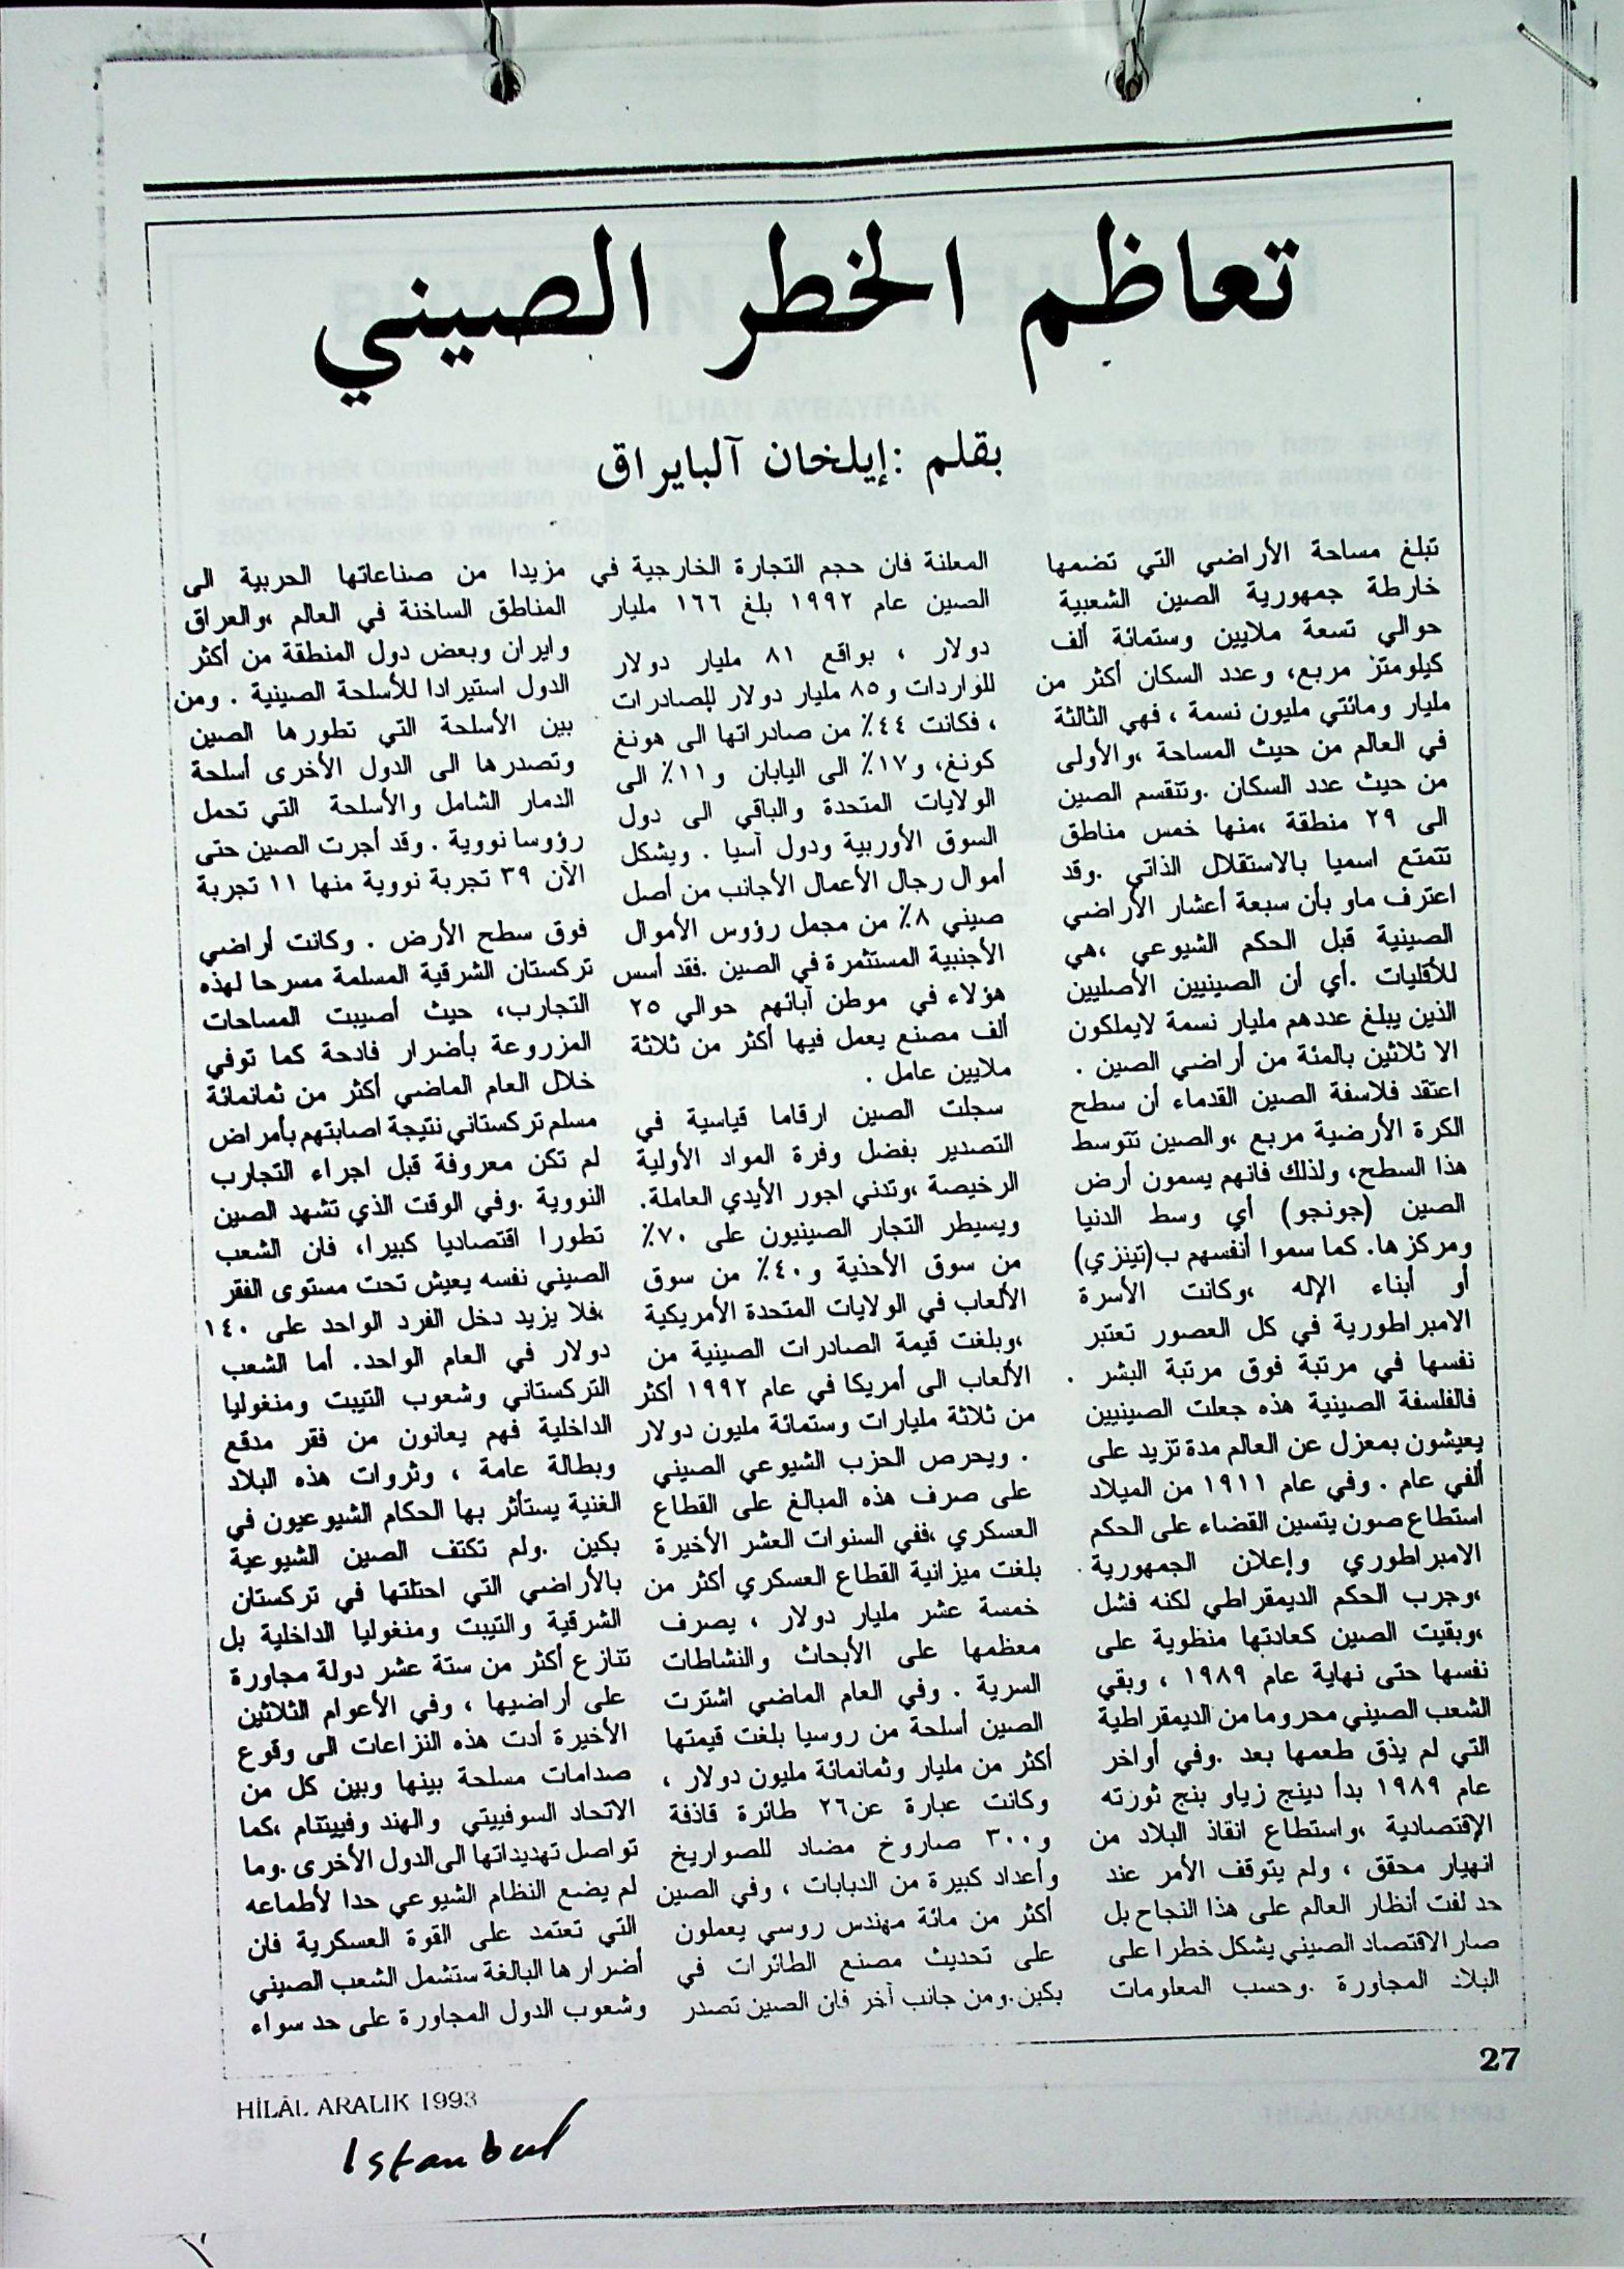 تعاظم الخطر الصيني
بقلم :إيلخان آلبايراق
تبلغ مساحة الأراضي التي تضمها
خارطة جمهورية الصين الشعبية
حوالي تسعة ملايين وستمائة ألف
كيلومتز مربع، وعدد السكان أكثر من
مليار ومائتي مليون نسمة ، فهي الثالثة
في العالم من حيث المساحة ،والأولى
من حيث عدد السكان .وتنقسم الصين
الى ٢٩ منطقة ،منها خمس مناطق
تتمتع اسميا بالاستقلال الذاتي .وقد
اعترف ماو بأن سبعة أعشار الأراضي
الصينية قبل الحكم الشيوعي ،هي
للأقليات .أي أن الصينيين الأصليين
الذين يبلغ عددهم مليار نسمة لايملكون
الا ثلاثين بالمئة من أراضي الصين .
اعتقد فلاسفة الصين القدماء أن سطح
الكرة الأرضية مربع ،والصين تتوسط
هذا السطح، ولذلك فانهم يسمون أرض
الصين (جونجو) أي وسط الدنيا
ومركزها. كما سموا أنفسهم ب(تينزي)
أو أبناء الإله ،وكانت الأسرة
الامبراطورية في كل العصور تعتبر
نفسها في مرتبة فوق مرتبة البشر .
فالفلسفة الصينية هذه جعلت الصينيين
يعيشون بمعزل عن العالم مدة تزيد على
ألفي عام . وفي عام ١٩١١ من الميلاد
استطاع صون يتسين القضاء على الحكم
الامبراطوري وإعلان الجمهورية .
،وجرب الحكم الديمقراطي لكنه فشل
،وبقيت الصين كعادتها منظوية على
نفسها حتى نهاية عام ١٩٨٩ ، وبقي
الشعب الصيني محروما من الديمقراطية
التي لم يذق طعمها بعد .وفي أواخر
عام ١٩٨٩ بدأ دينج زياو بنج ثورته
الإقتصادية ،واستطاع انقاذ البلاد من
انهيار محقق ، ولم يتوقف الأمر عند
حد لفت أنظار العالم على هذا النجاح بل
صار الاقتصاد الصيني يشكل خطرا على
البلاد المجاورة .وحسب المعلومات
المعلنة فان حجم التجارة الخارجية في
الصين عام ١٩٩٢ بلغ ١٦٦ مليار
دولار ، بواقع ٨١ مليار دولار
للواردات و٨٥ مليار دولار للصادرات
، فكانت ٤٤٪ من صادراتها الى هونغ
كونغ، و١٧٪ الى اليابان و١١٪ الى
الولايات المتحدة والباقي الى دول
السوق الأوربية ودول آسيا . ويشكل
أموال رجال الأعمال الأجانب من أصل
صيني ٨٪ من مجمل رؤوس الأموال
الأجنبية المستثمرة في الصين .فقد أسس
هؤلاء في موطن آبائهم حوالي ٢٥
ألف مصنع يعمل فيها أكثر من ثلاثة
ملايين عامل .
سجلت الصين ارقاما قياسية في
التصدير بفضل وفرة المواد الأولية
الرخيصة ،وتدني اجور الأيدي العاملة.
ويسيطر التجار الصينيون على ٧٠٪
من سوق الأحذية و٤٠٪ من سوق
الألعاب في الولايات المتحدة الأمريكية
،وبلغت قيمة الصادرات الصينية من
الألعاب الى أمريكا في عام ١٩٩٢ أكثر
من ثلاثة مليارات وستمائة مليون دولار
. ويحرص الحزب الشيوعي الصيني
على صرف هذه المبالغ على القطاع
العسكري ،ففي السنوات العشر الأخيرة
بلغت ميزانية القطاع العسكري أكثر من
خمسة عشر مليار دولار ، يصرف
معظمها على الأبحاث والنشاطات
السرية . وفي العام الماضي اشترت
الصين أسلحة من روسيا بلغت قيمتها
أكثر من مليار وثمانمائة مليون دولار ،
وكانت عبارة عن٢٦ طائرة قاذفة
و٣٠٠ صاروخ مضاد للصواريخ
وأعداد كبيرة من الدبابات ، وفي الصين
أكثر من مائة مهندس روسي يعملون
على تحديث مصنع الطائرات في
بكين.ومن جانب آخر فان الصين تصدر
مزيدا من صناعاتها الحربية الى
المناطق الساخنة في العالم ،والعراق
وايران وبعض دول المنطقة من أكثر
الدول استيرادا للأسلحة الصينية . ومن
بين الأسلحة التي تطورها الصين
وتصدرها الى الدول الأخرى أسلحة
الدمار الشامل والأسلحة التي تحمل
رؤوسا نووية . وقد أجرت الصين حتى
الآن ٣٩ تجربة نووية منها ١١ تجربة
فوق سطح الأرض . وكانت أراضي
تركستان الشرقية المسلمة مسرحا لهذه
التجارب، حيث أصيبت المساحات
المزروعة بأضرار فادحة كما توفي
خلال العام الماضي أكثر من ثمانمائة
مسلم تركستاني نتيجة اصابتهم بأمراض
لم تكن معروفة قبل اجراء التجارب
النووية .وفي الوقت الذي تشهد الصين
تطورا اقتصاديا كبيرا، فان الشعب
الصيني نفسه يعيش تحت مستوى الفقر
،فلا يزيد دخل الفرد الواحد على ١٤٠
دولار في العام الواحد. أما الشعب
التركستاني وشعوب التيبت ومنغوليا
الداخلية فهم يعانون من فقر مدقع
وبطالة عامة ، وثروات هذه البلاد
الغنية يستأثر بها الحكام الشيوعيون في
بكين .ولم تكتف الصين الشيوعية
بالأراضي التي احتلتها في تركستان
الشرقية والتيبت ومنغوليا الداخلية بل
تنازع أكثر من ستة عشر دولة مجاورة
على أراضيها ، وفي الأعوام الثلاثين
الأخيرة أدت هذه النزاعات الى وقوع
صدامات مسلحة بينها وبين كل من
الاتحاد السوفييتي والهند وفيينتام ،كما
تواصل تهديداتها الى الدول الأخرى .وما
لم يضع النظام الشيوعي حدا لأطماعه
التي تعتمد على القوة العسكرية فان
أضرارها البالغة ستشمل الشعب الصيني
وشعوب الدول المجاورة على حد سواء
27
HİLÂL ARALIK 1993
Istanbul